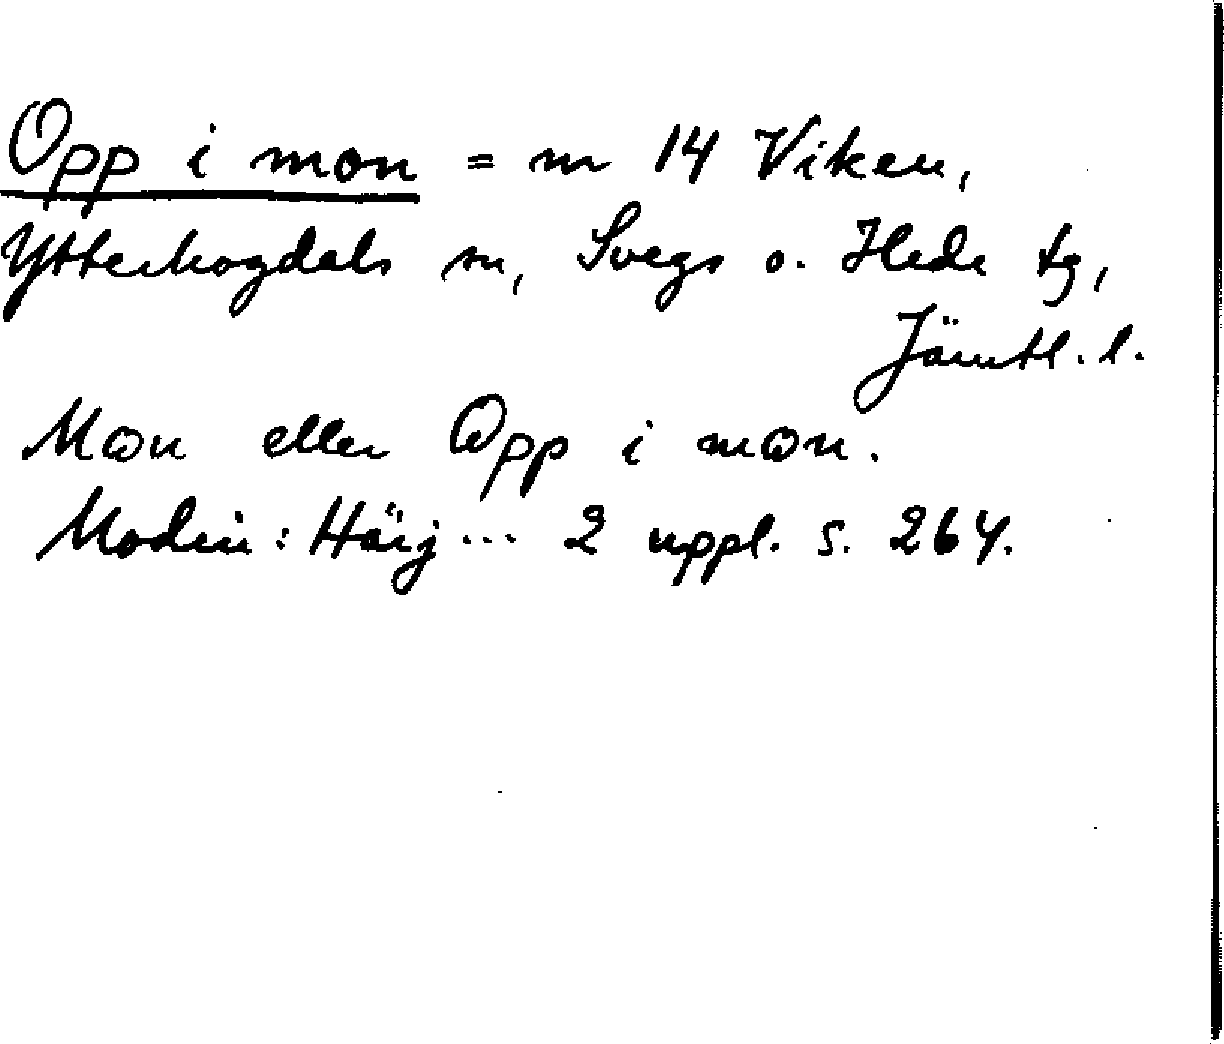 Opp i mon = nr 14 Viken,
Ytterhogdals sn, Svegs o. Hede tg,
Jämtl. l.
Mon eller Opp i mon.
Modin: Härj... 2 uppl. s. 264.